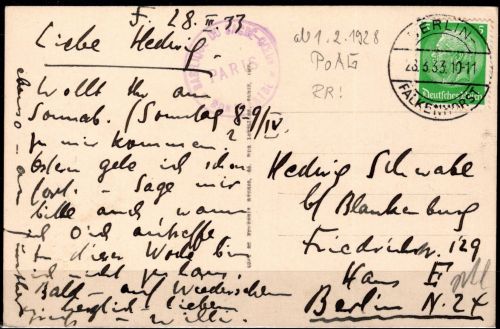 F. 28. III 33
Liebe Hedwig.
Wollt Ihr am
Sonnab. / Sonntag 8 9/IV.
zu mir kommen?
Ostern gehe ich schon
fort. – Sage mir
bitte auch wann
ich Dich antreffe
In dieser Woche bin
ich nicht zu Haus.
Bald – auf Wiedersehen
herzlich – lieben
Willi.
PARIS
ab 1.2.1928
PoAG
RR!
BERLIN-
28.3.33.10-11
FALKENHORST
Deutsches Reich
5
Hedwig Schwabe
b/ Blankenburg
Friedrichstr. 129
Haus F
Berlin N. 24